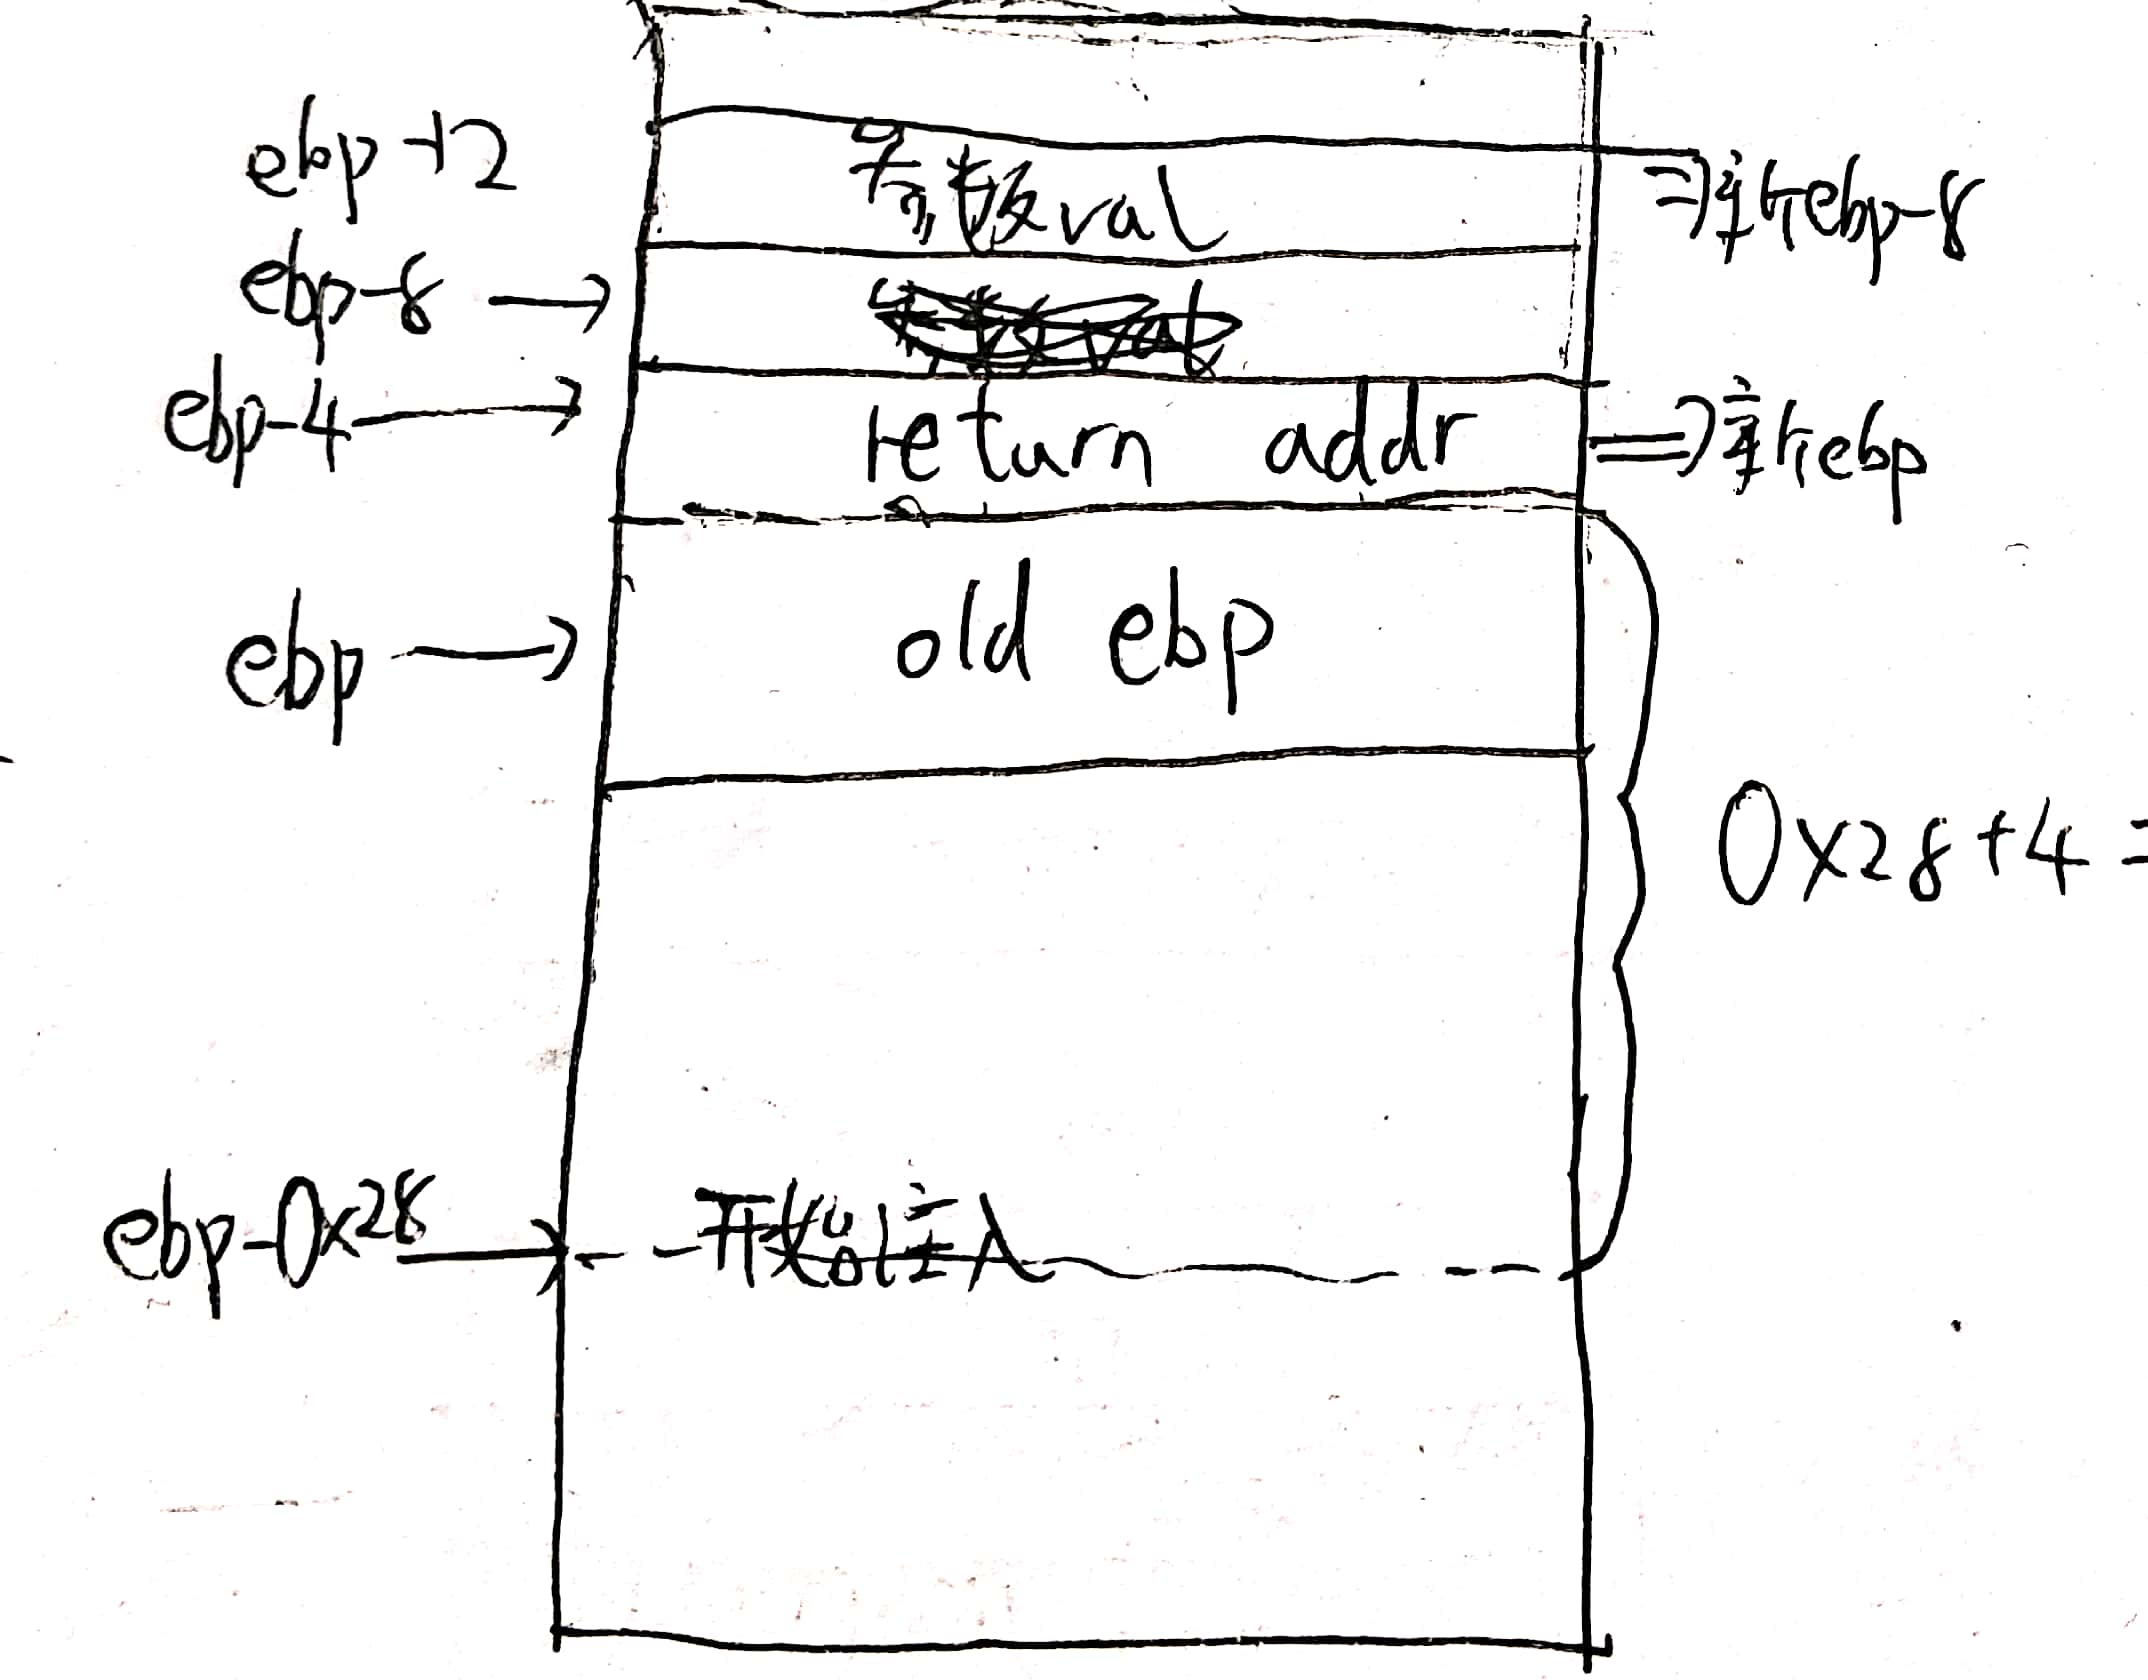 ebp+12
参数val
⇒新ebp-8
ebp-8 →
ebp-4 →
return addr
⇒新ebp
ebp →
old ebp
0x28+4=
ebp-0x28 →
开始注入